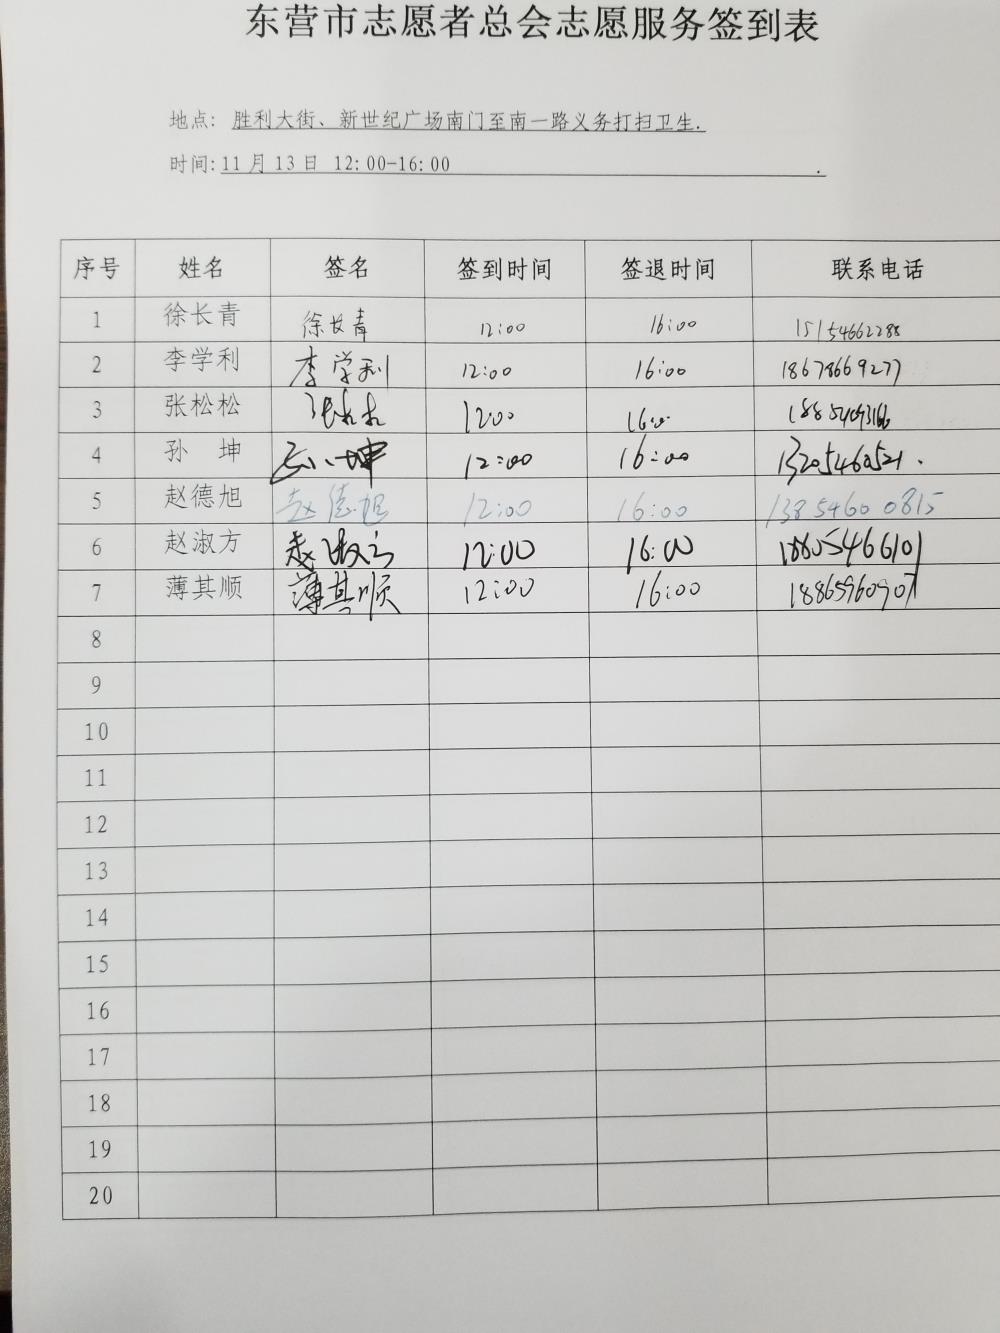 东营市志愿者总会志愿服务签到表
地点: 胜利大街、新世纪广场南门至南一路义务打扫卫生.
时间: 11月13日 12:00-16:00 .
序号 姓名 签名 签到时间 签退时间 联系电话
1 徐长青 徐长青 12:00 16:00 15154662288
2 李学利 李学利 12:00 16:00 18678669277
3 张松松 12:00 16:00
4 孙 坤 孙坤 12:00 16:00 13205460521.
5 赵德旭 赵德旭 12:00 16:00 13854600815
6 赵淑方 赵淑方 12:00 16:00 18605466101
7 薄其顺 薄其顺 12:00 16:00 18865960907
8
9
10
11
12
13
14
15
16
17
18
19
20